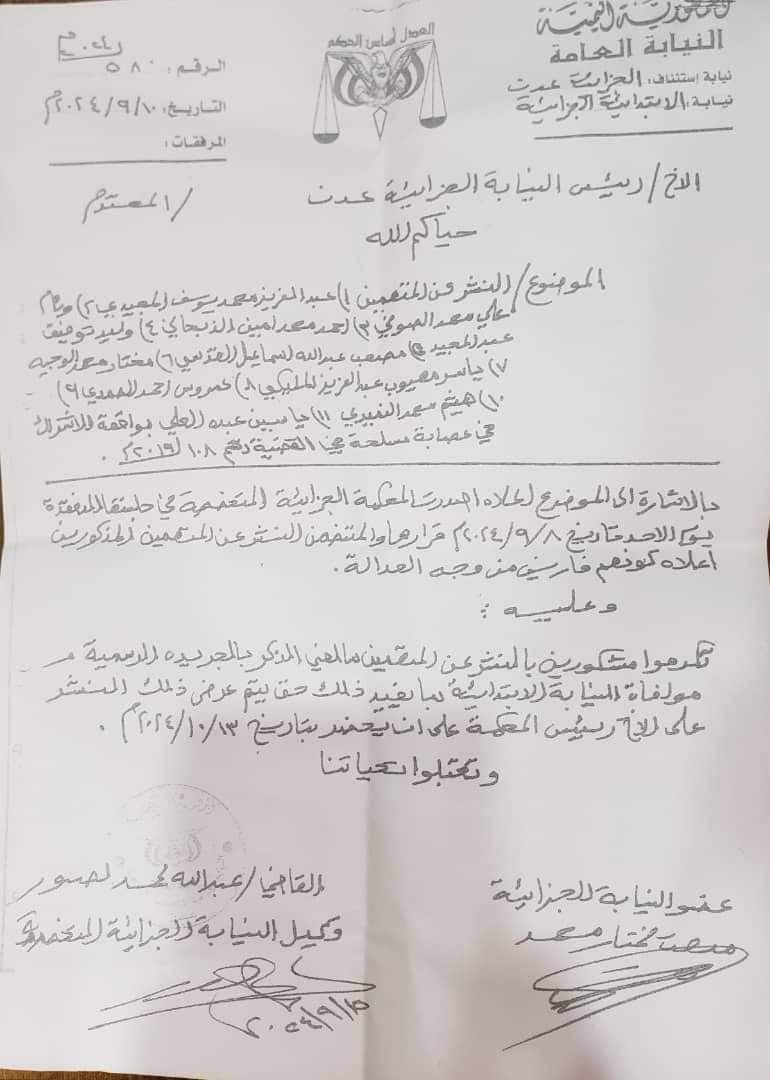 الجمهورية اليمنية
النيابة العامة
نيابة إستئناف: الجزائية عدن
نيابة: الابتدائية الجزائية
العدل أساس الحكم
الرقم: ٥٨٠
التاريخ: ٢٠٢٤/٩/١٠م
المرفقات:
الاخ/ رئيس النيابة الجزائية عدن / المحترم
حياكم الله
الموضوع/ النشر عن المتهمين ١) عبدالعزيز محمد يوسف المجيدي ٢) وئام
علي محمد الصوفي ٣) احمد محمد امين الذبحاني ٤) وليد توفيق
عبدالمجيد ٥) مصعب عبدالله اسماعيل القدسي ٦) مختار محمد الوجيه
٧) ياسر مهيوب عبدالعزيز المليكي ٨) عمروس احمد الصمدي ٩)
١٠) هيثم سعد النبيدي ١١) ياسين عبده العلي بواقعة الاشتراك
في عصابة مسلحة في القضية رقم ١٠٨ ٢٠١٩م .
بالاشارة الى الموضوع اعلاه اصدرت المحكمة الجزائية المتخصصة في جلستها المنعقدة
يوم الاحد تاريخ ٢٠٢٤/٩/٨م قرارها والمتضمن النشر عن المتهمين المذكورين
اعلاه كونهم فارين من وجه العدالة .
وعليه :
تكرموا مشكورين بالنشر عن المتهمين سالفي الذكر بالجريده الرسمية
موافاة النيابة الابتدائية بما يفيد ذلك حتى يتم عرض ذلك النشر
على الاخ رئيس المحكمة على ان يحضر بتاريخ ٢٠٢٤/١٠/١٣م .
وتقبلوا تحياتنا
عضو النيابة الجزائية
مختار محمد
القاضي/ عبدالله محمد لصور
وكيل النيابة الجزائية المتخصصة
٢٠٢٤/٩/١٥